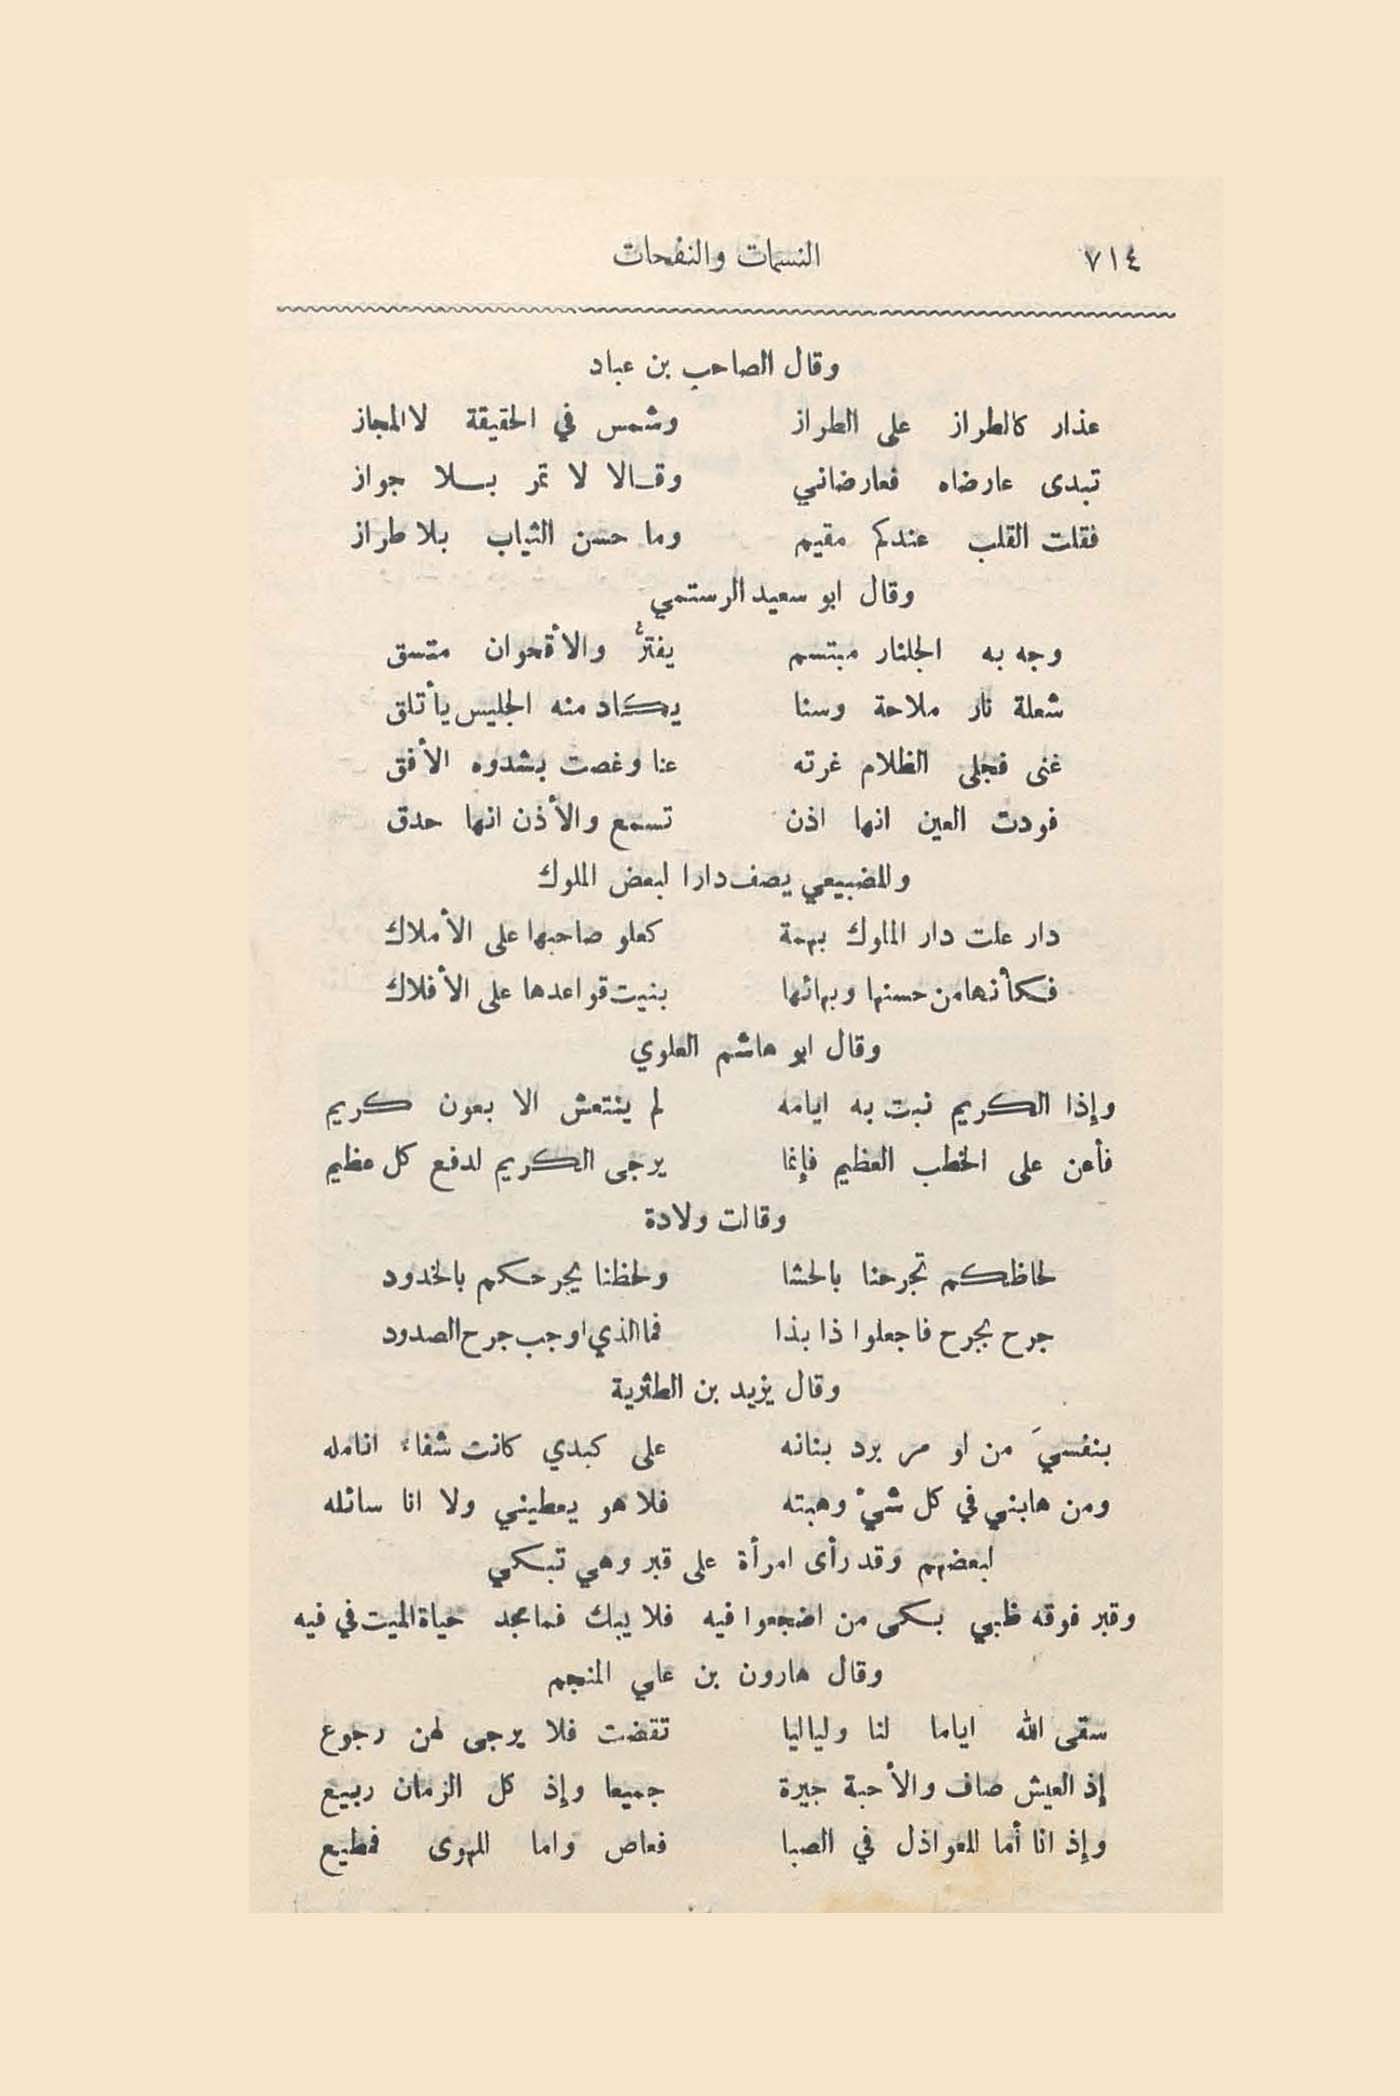 ٧١٤ النسمات والنفحات
وقال الصاحب بن عباد
عذار كالطراز على الطراز وشمس في الحقيقة لا المجاز
تبدى عارضاه فعارضاني وقالا لا تمر بلا جواز
فقلت القلب عندكم مقيم وما حسن الثياب بلا طراز
وقال ابو سعيد الرستمي
وجه به الجلنار مبتسم يفترُّ والأقحوان متسق
شعلة نار ملاحة وسنا يكاد منه الجليس يأتلق
غنى فجلى الظلام غرته عنا وغصت بشدوه الأفق
فودت العين انها اذن تسمع والأذن انها حدق
وللضبيعي يصف دارا لبعض الملوك
دار علت دار الملوك بهمة كعلو صاحبها على الأملاك
فكأنها من حسنها وبهائها بنيت قواعدها على الأفلاك
وقال ابو هاشم العلوي
وإذا الكريم نبت به ايامه لم ينتعش الا بعون كريم
فأعن على الخطب العظيم فإنما يرجى الكريم لدفع كل عظيم
وقالت ولادة
لحاظكم تجرحنا بالحشا ولحظنا يجرحكم بالخدود
جرح بجرح فاجعلوا ذا بذا فما الذي اوجب جرح الصدود
وقال يزيد بن الطثرية
بنفسيَ من لو مر برد بنانه على كبدي كانت شفاء انامله
ومن هابني في كل شيْ وهبته فلا هو يعطيني ولا انا سائله
لبعضهم وقد رأى امرأة على قبر وهي تبكي
وقبر فوقه ظبي بكى من اضجعوا فيه فلا يبك فما مجد حياة الميت في فيه
وقال هارون بن علي المنجم
سقى الله اياما لنا ولياليا تقضت فلا يرجى لهن رجوع
إذ العيش صاف والأحبة جيرة جميعا وإذ كل الزمان ربيع
وإذ انا أما للعواذل في الصبا فعاص واما للهوى فمطيع